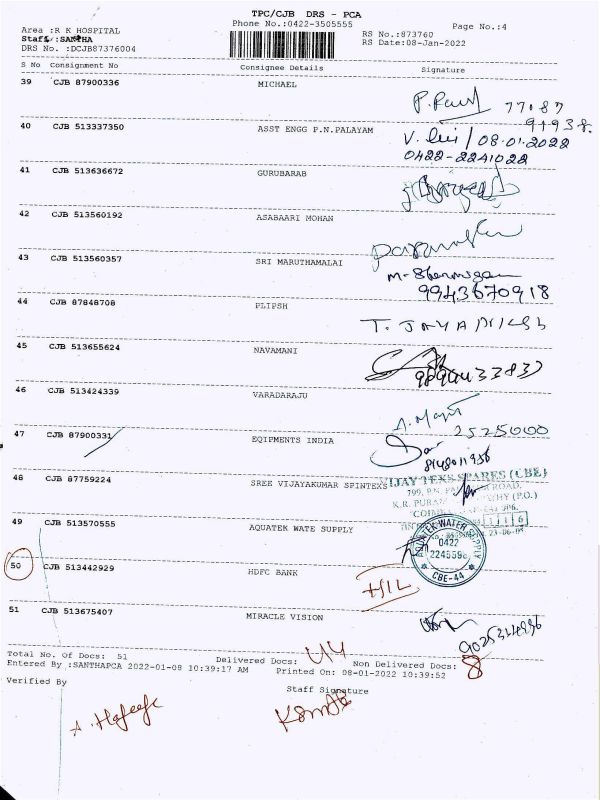 TPC/CJB DRS - PCA
Area :R K HOSPITAL Phone No.:0422-3505555 Page No.:4
Staff:SANTHA RS No.:873760
DRS No. :DCJB87376004 RS Date:08-Jan-2022
S No Consignment No Consignee Details Signature
39 CJB 87900336 MICHAEL
P. Paul 77087
91938.
40 CJB 513337350 ASST ENGG P.N.PALAYAM
08.01.2022
0422-2241022
41 CJB 513636672 GURUBARAB
42 CJB 513560192 ASABAARI MOHAN
43 CJB 513560357 SRI MARUTHAMALAI
M-Shanmugam
9943670918
44 CJB 87848708 PLIPSH
45 CJB 513655624 NAVAMANI
46 CJB 513424339 VARADARAJU
2525000
47 CJB 87900331 EQIPMENTS INDIA
48 CJB 87759224 SREE VIJAYAKUMAR SPINTEXS
VIJAY TEXS SPARES (CBE)
799, P.N. ROAD,
K.R. PURAM (P.O.)
49 CJB 513570555 AQUATEK WATE SUPPLY
AQUATEK WATER SUPPLY
0422
CBE-44
50 CJB 513442929 HDFC BANK
51 CJB 513675407 MIRACLE VISION
Total No. Of Docs: 51 Delivered Docs: 44 Non Delivered Docs: 8
Entered By :SANTHAPCA 2022-01-08 10:39:17 AM Printed On: 08-01-2022 10:39:52
Verified By Staff Signature
A. Hafeefe